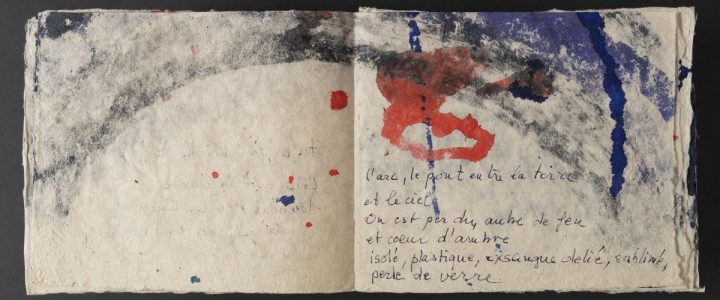 l'arc, le pont entre la terre
et le ciel
On est perdu, aube de feu
et coeur d'ambre
isolé, plastique, exsangue delié, sublimé,
perle de verre